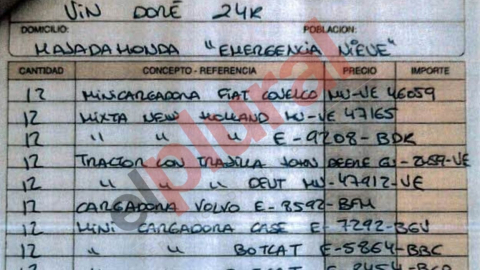 VIN DORÉ 24K
DOMICILIO: POBLACION:
MAJADAHONDA "EMERGENCIA NIEVE"
CANTIDAD CONCEPTO - REFERENCIA PRECIO IMPORTE
12 MINICARGADORA FIAT COVELCO MU-VE 46059
12 MIXTA NEW HOLLAND MU-VE 47165
12 " " " E-9208-BDR
12 TRACTOR CON TRAJILLA JOHN DEERE GU-2459-VE
12 " " " DEUT MU-47912-VE
12 CARGADORA VOLVO E-8592-BFM
12 MINI CARGADORA CASE E-7292-BGV
12 " " BOTCAT E-5864-BBC
elplural